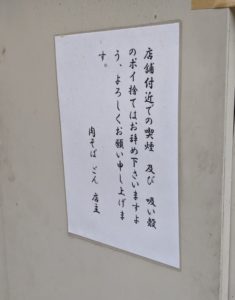 店舗付近での喫煙 及び 吸い殻
のポイ捨てはお辞め下さいますよ
う、よろしくお願い申し上げま
す。
肉そば ごん 店主